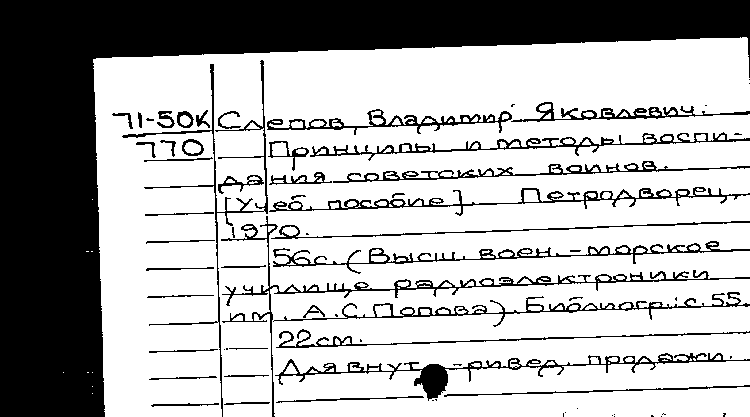 71-50К Слепов, Владимир Яковлевич.
770 Принципы и методы воспи-
тания советских воинов.
[Учеб. пособие]. Петродворец,
1970.
56с. (Высш. воен.-морское
училище радиоэлектроники
им. А.С. Попова). Библиогр.: с. 55.
22см.
Для внут -ривед. продажи.